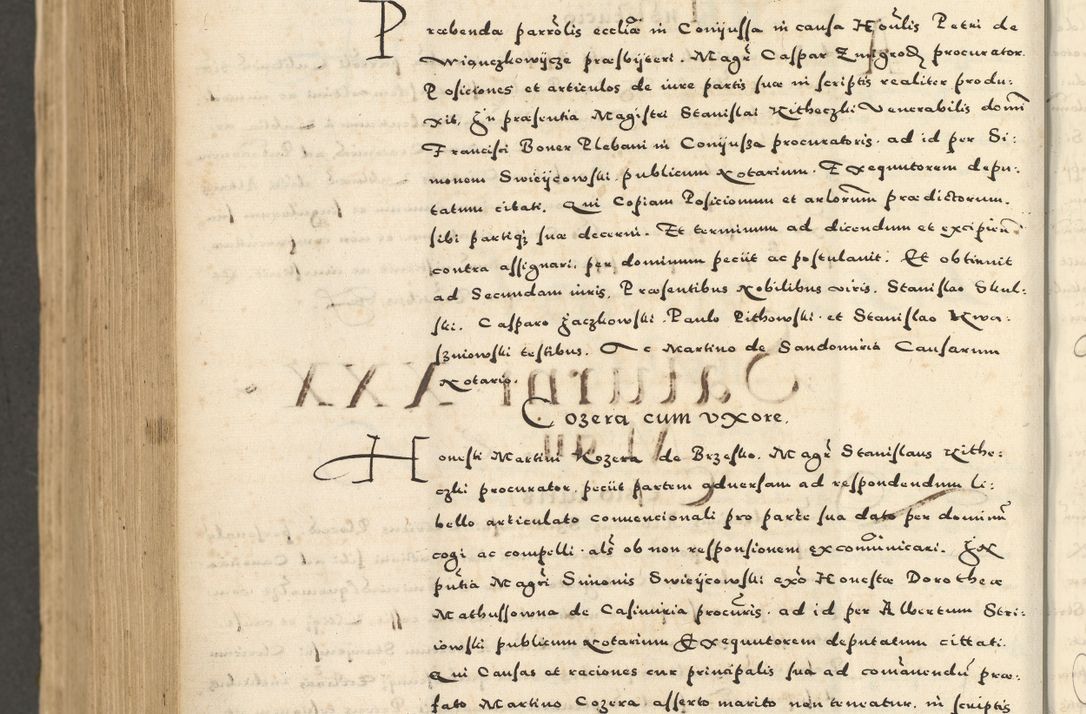 Præbendæ parrõlis eccliæ in Conijussa in causa Hoñlis Petri de
Wiquczkowijcze præsbijteri. Magr̃ Caspar Zmigrod procurator
Posiciones et articulos de iure partis suæ in scriptis realiter produ:
xit. In præsentia Magistri Stanislai Kitheczki Venerabilis domi
Francisci Boner Plebani in Conijussa procuratoris. ad id per Si:
monem Swieijcowski. publicum Notarium. Exequutorem depu:
tatum citati. Qui Copiam Posicionum et arlorum prædictorum.
sibi partiq; suæ decerni. Et terminum ad dicendum et excipien
contra assignari. per dominum peciit ac postulauit. Et obtinuit
ad Secundam iuris. Præsentibus Nobilibus viris. Stanislao Skul:
ski. Casparo Jaczkowski. Paulo Pithowski. et Stanislao Kwa:
szniowski testibus. Ac Martino de Sandomiria Causarum
Notario.
Cozera cum vxore.
Honesti Martini Kozera de Brzesko. Magr̃ Stanislaus Kithe:
czki procurator. peciit partem aduersam ad respondendum li:
bello articulato conuencionali pro parte sua dato per dominũ
cogi ac compelli. als̃ ob non responsionem excom̃unicari. In
pñtia Magr̃i Simonis Swieijcowski exõ Honestæ Dorotheæ
Mathussowna de Casimiria procuris̃. ad id per Albertum Stri:
iowski publicum Notarium Exequutorem deputatum cittati.
Qui Causas et raciones cur principalis sua ad com̃anendũ præ:
fato Martino Cozera asserto marito non teneatur. in scriptis